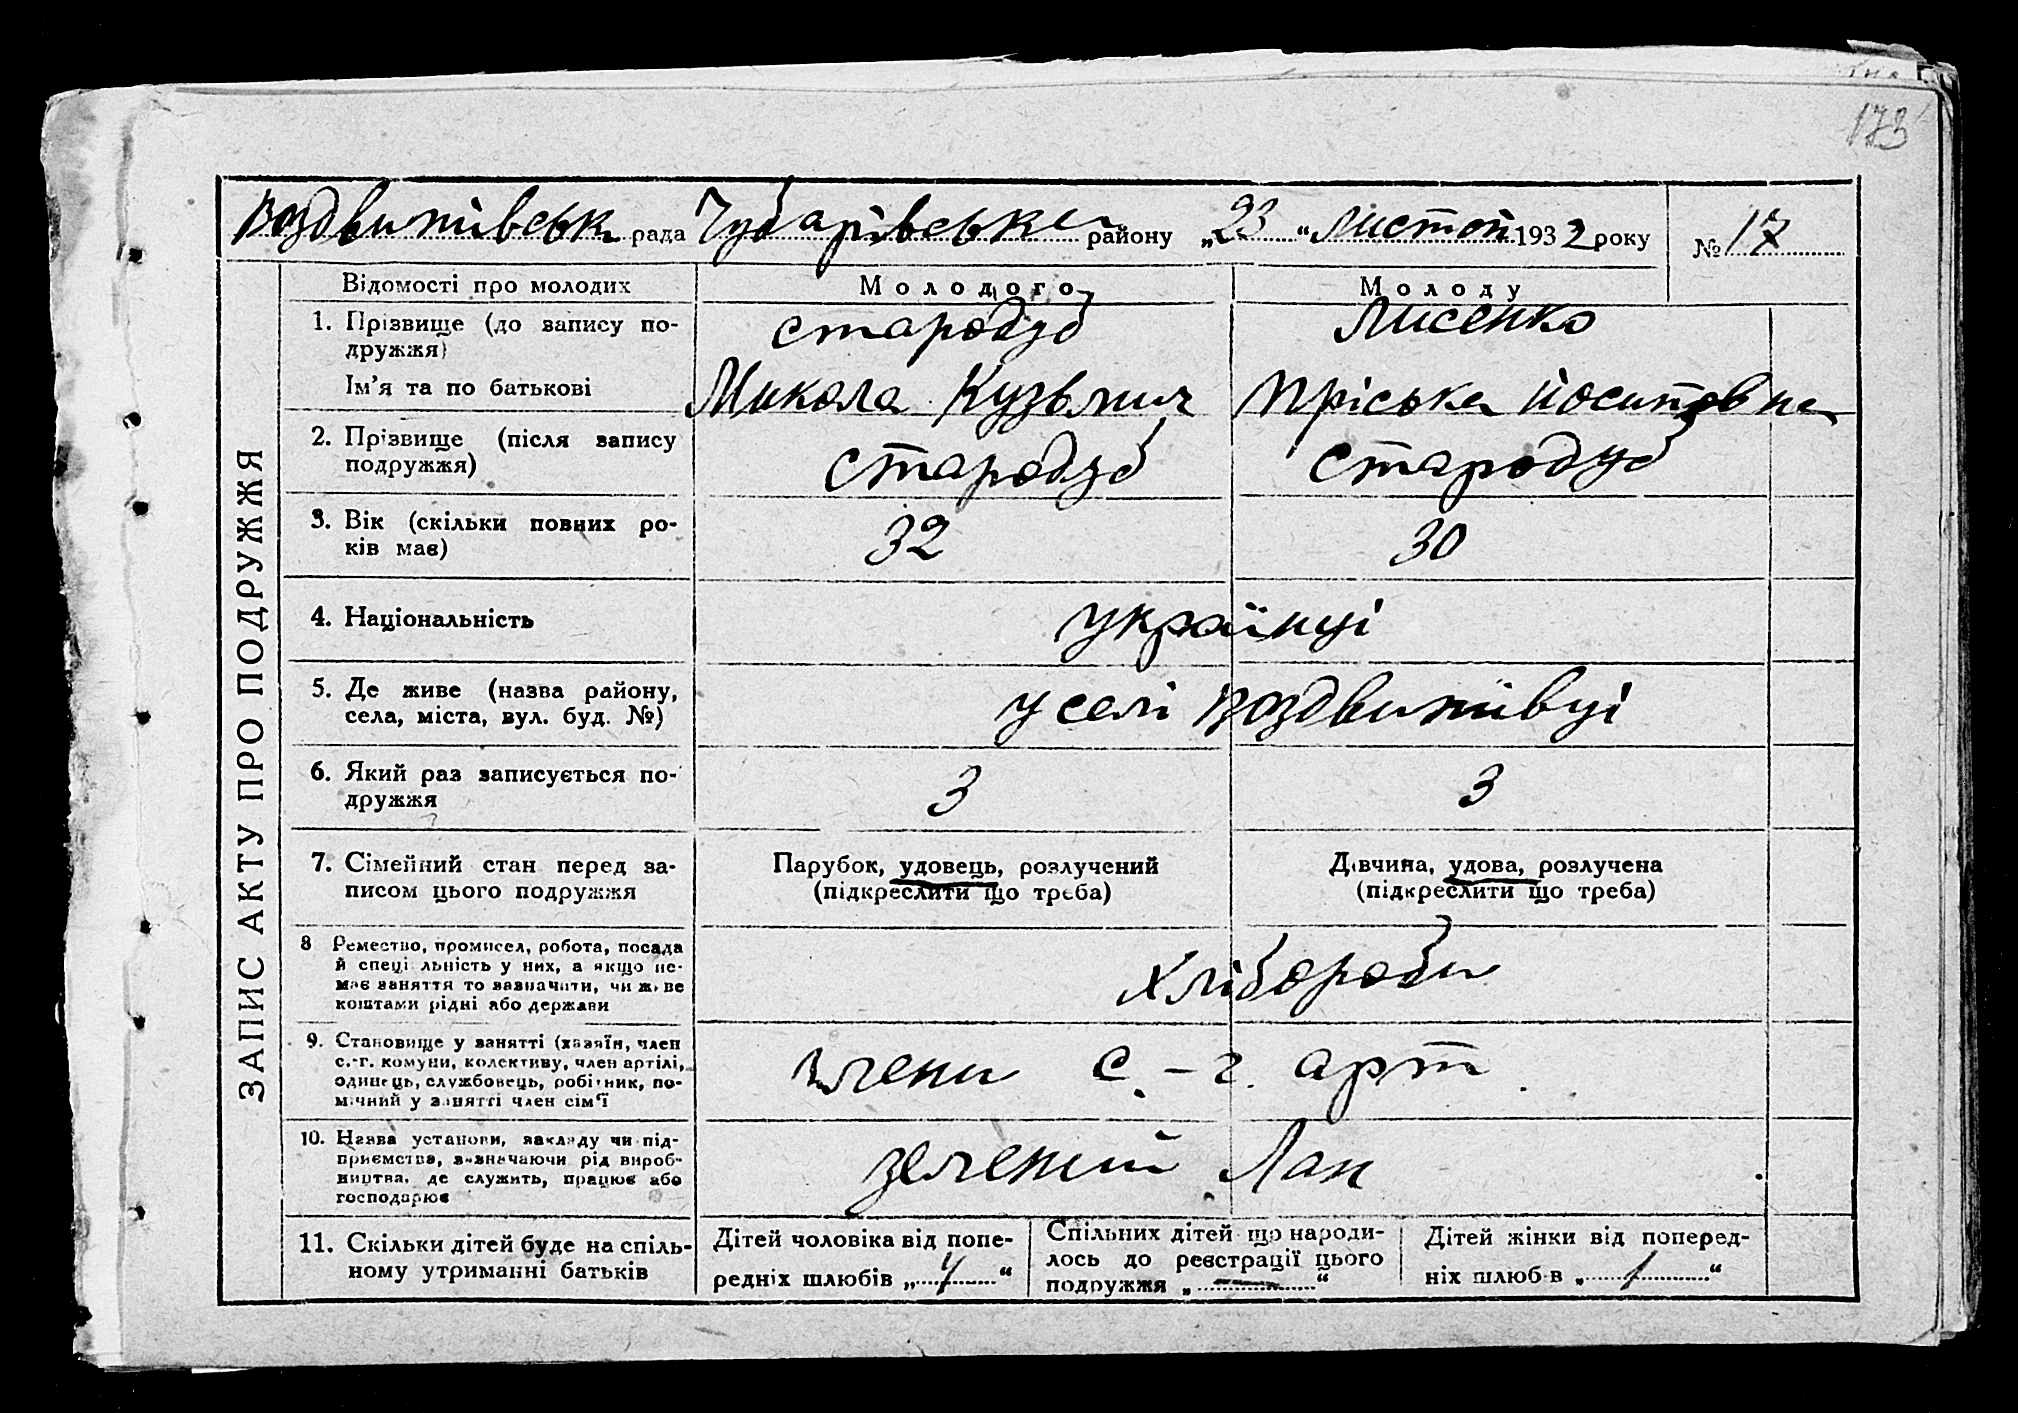 173
Воздвижівська рада Чубарівське району „23“ листоп 1932 року № 17
ЗАПИС АКТУ ПРО ПОДРУЖЖЯ
Відомості про молодих Молодого Молоду
1. Прізвище (до запису по-
дружжя)
Стародуб Лисенко
Ім'я та по батькові Микола Кузьмич Пріська Йосиповна
2. Прізвище (після запису
подружжя)
Стародуб Стародуб
3. Вік (скільки повних ро-
ків має)
32 30
4. Національність українці
5. Де живе (назва району,
села, міста, вул. буд. №)
у селі Воздвижівці
6. Який раз записується по-
дружжя
3 3
7. Сімейний стан перед за-
писом цього подружжя
Парубок, удовець, розлучений
(підкреслити що треба)
Дівчина, удова, розлучена
(підкреслити що треба)
8 Ремество, промисел, робота, посада
й спеціальність у них, а якщо не-
має заняття то зазначити, чи живе
коштами рідні або держави
Хлібороби
9. Становище у занятті (хазяїн, член
с.-г. комуни, колективу, член артілі,
одинець, службовець, робітник, по-
мічний у занятті член сім'ї
члени с.-г. арт
10. Назва установи, закладу чи під-
приємства, зазначаючи рід вироб-
ництва, де служить, працює або
господарює
зелений Лан
11. Скільки дітей буде на спіль-
ному утриманні батьків
Дітей чоловіка від попе-
редніх шлюбів „4“
Спільних дітей що народи-
лось до реєстрації цього
подружжя „—“
Дітей жінки від поперед-
ніх шлюбів „1“